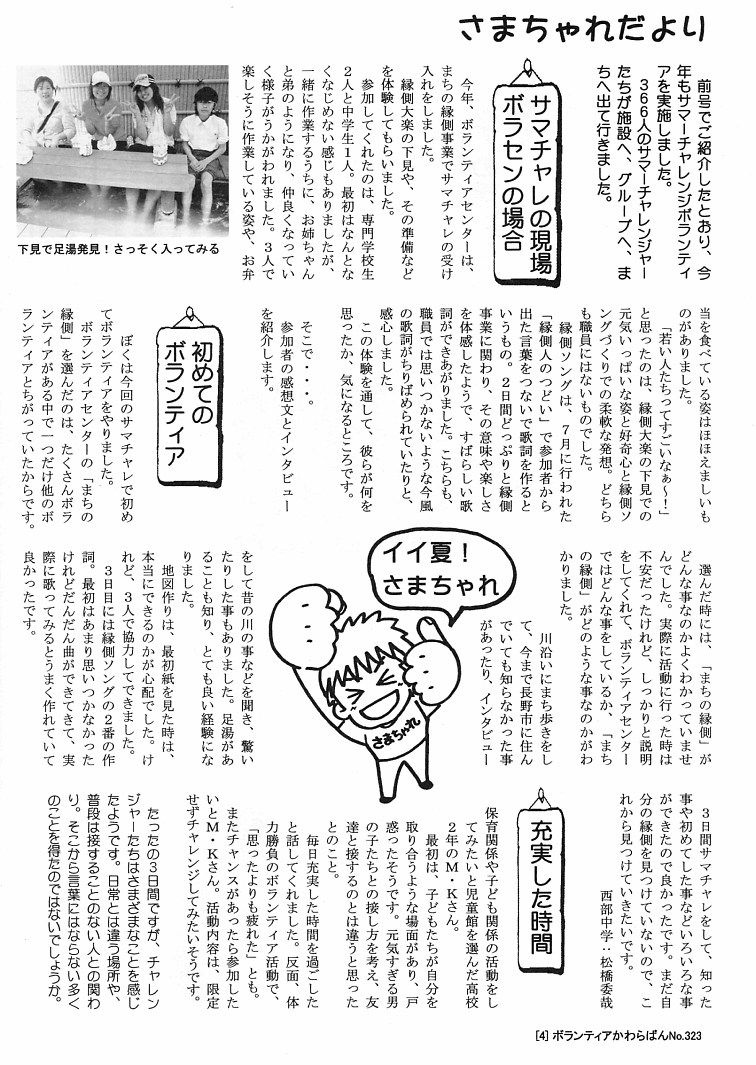 さまちゃれだより
前号でご紹介したとおり、今
年もサマーチャレンジボランティ
アを実施しました。
366人のサマーチャレンジャー
たちが施設へ、グループへ、ま
ちへ出て行きました。
サマチャレの現場
ボラセンの場合
今年、ボランティアセンターは、
まちの縁側事業でサマチャレの受け
入れをしました。
縁側大楽の下見や、その準備など
を体験してもらいました。
参加してくれたのは、専門学校生
２人と中学生１人。最初はなんとな
くなじめない感じもありましたが、
一緒に作業するうちに、お姉ちゃん
と弟のようになり、仲良くなってい
く様子がうかがわれました。３人で
楽しそうに作業している姿や、お弁
下見で足湯発見！さっそく入ってみる
当を食べている姿はほほえましいも
のがありました。
「若い人たちってすごいなぁ～！」
と思ったのは、縁側大楽の下見での
元気いっぱいな姿と好奇心と縁側ソ
ングづくりでの柔軟な発想。どちら
も職員にはないものでした。
縁側ソングは、７月に行われた
「縁側人のつどい」で参加者から
出た言葉をつないで歌詞を作ると
いうもの。２日間どっぷりと縁側
事業に関わり、その意味や楽しさ
を体感したようで、すばらしい歌
詞ができあがりました。こちらも、
職員では思いつかないような今風
の歌詞がちりばめられていたりと、
感心しました。
この体験を通して、彼らが何を
思ったか、気になるところです。
そこで・・・。
参加者の感想文とインタビュー
を紹介します。
初めての
ボランティア
ぼくは今回のサマチャレで初め
てボランティアをやりました。
ボランティアセンターの「まちの
縁側」を選んだのは、たくさんボラ
ンティアがある中で一つだけ他のボ
ランティアとちがっていたからです。
選んだ時には、「まちの縁側」が
どんな事なのかよくわかっていませ
んでした。実際に活動に行った時は
不安だったけれど、しっかりと説明
をしてくれて、ボランティアセンター
ではどんな事をしているか、「まち
の縁側」がどのような事なのかがわ
かりました。
川沿いにまち歩きをし
て、今まで長野市に住ん
でいても知らなかった事
があったり、インタビュー
イイ夏！
さまちゃれ
さまちゃれ
をして昔の川の事などを聞き、驚い
たりした事もありました。足湯があ
ることも知り、とても良い経験にな
りました。
地図作りは、最初紙を見た時は、
本当にできるのかが心配でした。け
れど、３人で協力してできました。
３日目には縁側ソングの２番の作
詞。最初はあまり思いつかなかった
けれどだんだん曲ができてきて、実
際に歌ってみるとうまく作れていて
良かったです。
３日間サマチャレをして、知った
事や初めてした事などいろいろな事
ができたので良かったです。まだ自
分の縁側を見つけていないので、こ
れから見つけていきたいです。
西部中学：松橋委哉
充実した時間
保育関係や子ども関係の活動をし
てみたいと児童館を選んだ高校
２年のＭ・Ｋさん。
最初は、子どもたちが自分を
取り合うような場面があり、戸
惑ったそうです。元気すぎる男
の子たちとの接し方を考え、友
達と接するのとは違うと思った
とのこと。
毎日充実した時間を過ごした
と話してくれました。反面、体
力勝負のボランティア活動で、
「思ったよりも疲れた」とも。
またチャンスがあったら参加した
いとＭ・Ｋさん。活動内容は、限定
せずチャレンジしてみたいそうです。
たったの３日間ですが、チャレン
ジャーたちはさまざまなことを感じ
たようです。日常とは違う場所や、
普段は接することのない人との関わ
り。そこから言葉にはならない多く
のことを得たのではないでしょうか。
[4] ボランティアかわらばんNo.323